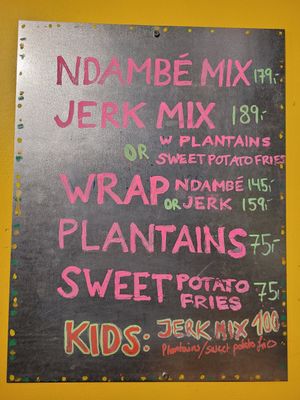 NDAMBÉ MIX 179:-
JERK MIX 189:-
W PLANTAINS
OR SWEET POTATO FRIES
WRAP NDAMBÉ 145:-
OR JERK 159:-
PLANTAINS 75:-
SWEET POTATO FRIES 75:-
KIDS: JERK MIX 100:-
Plantains/sweet potato fries